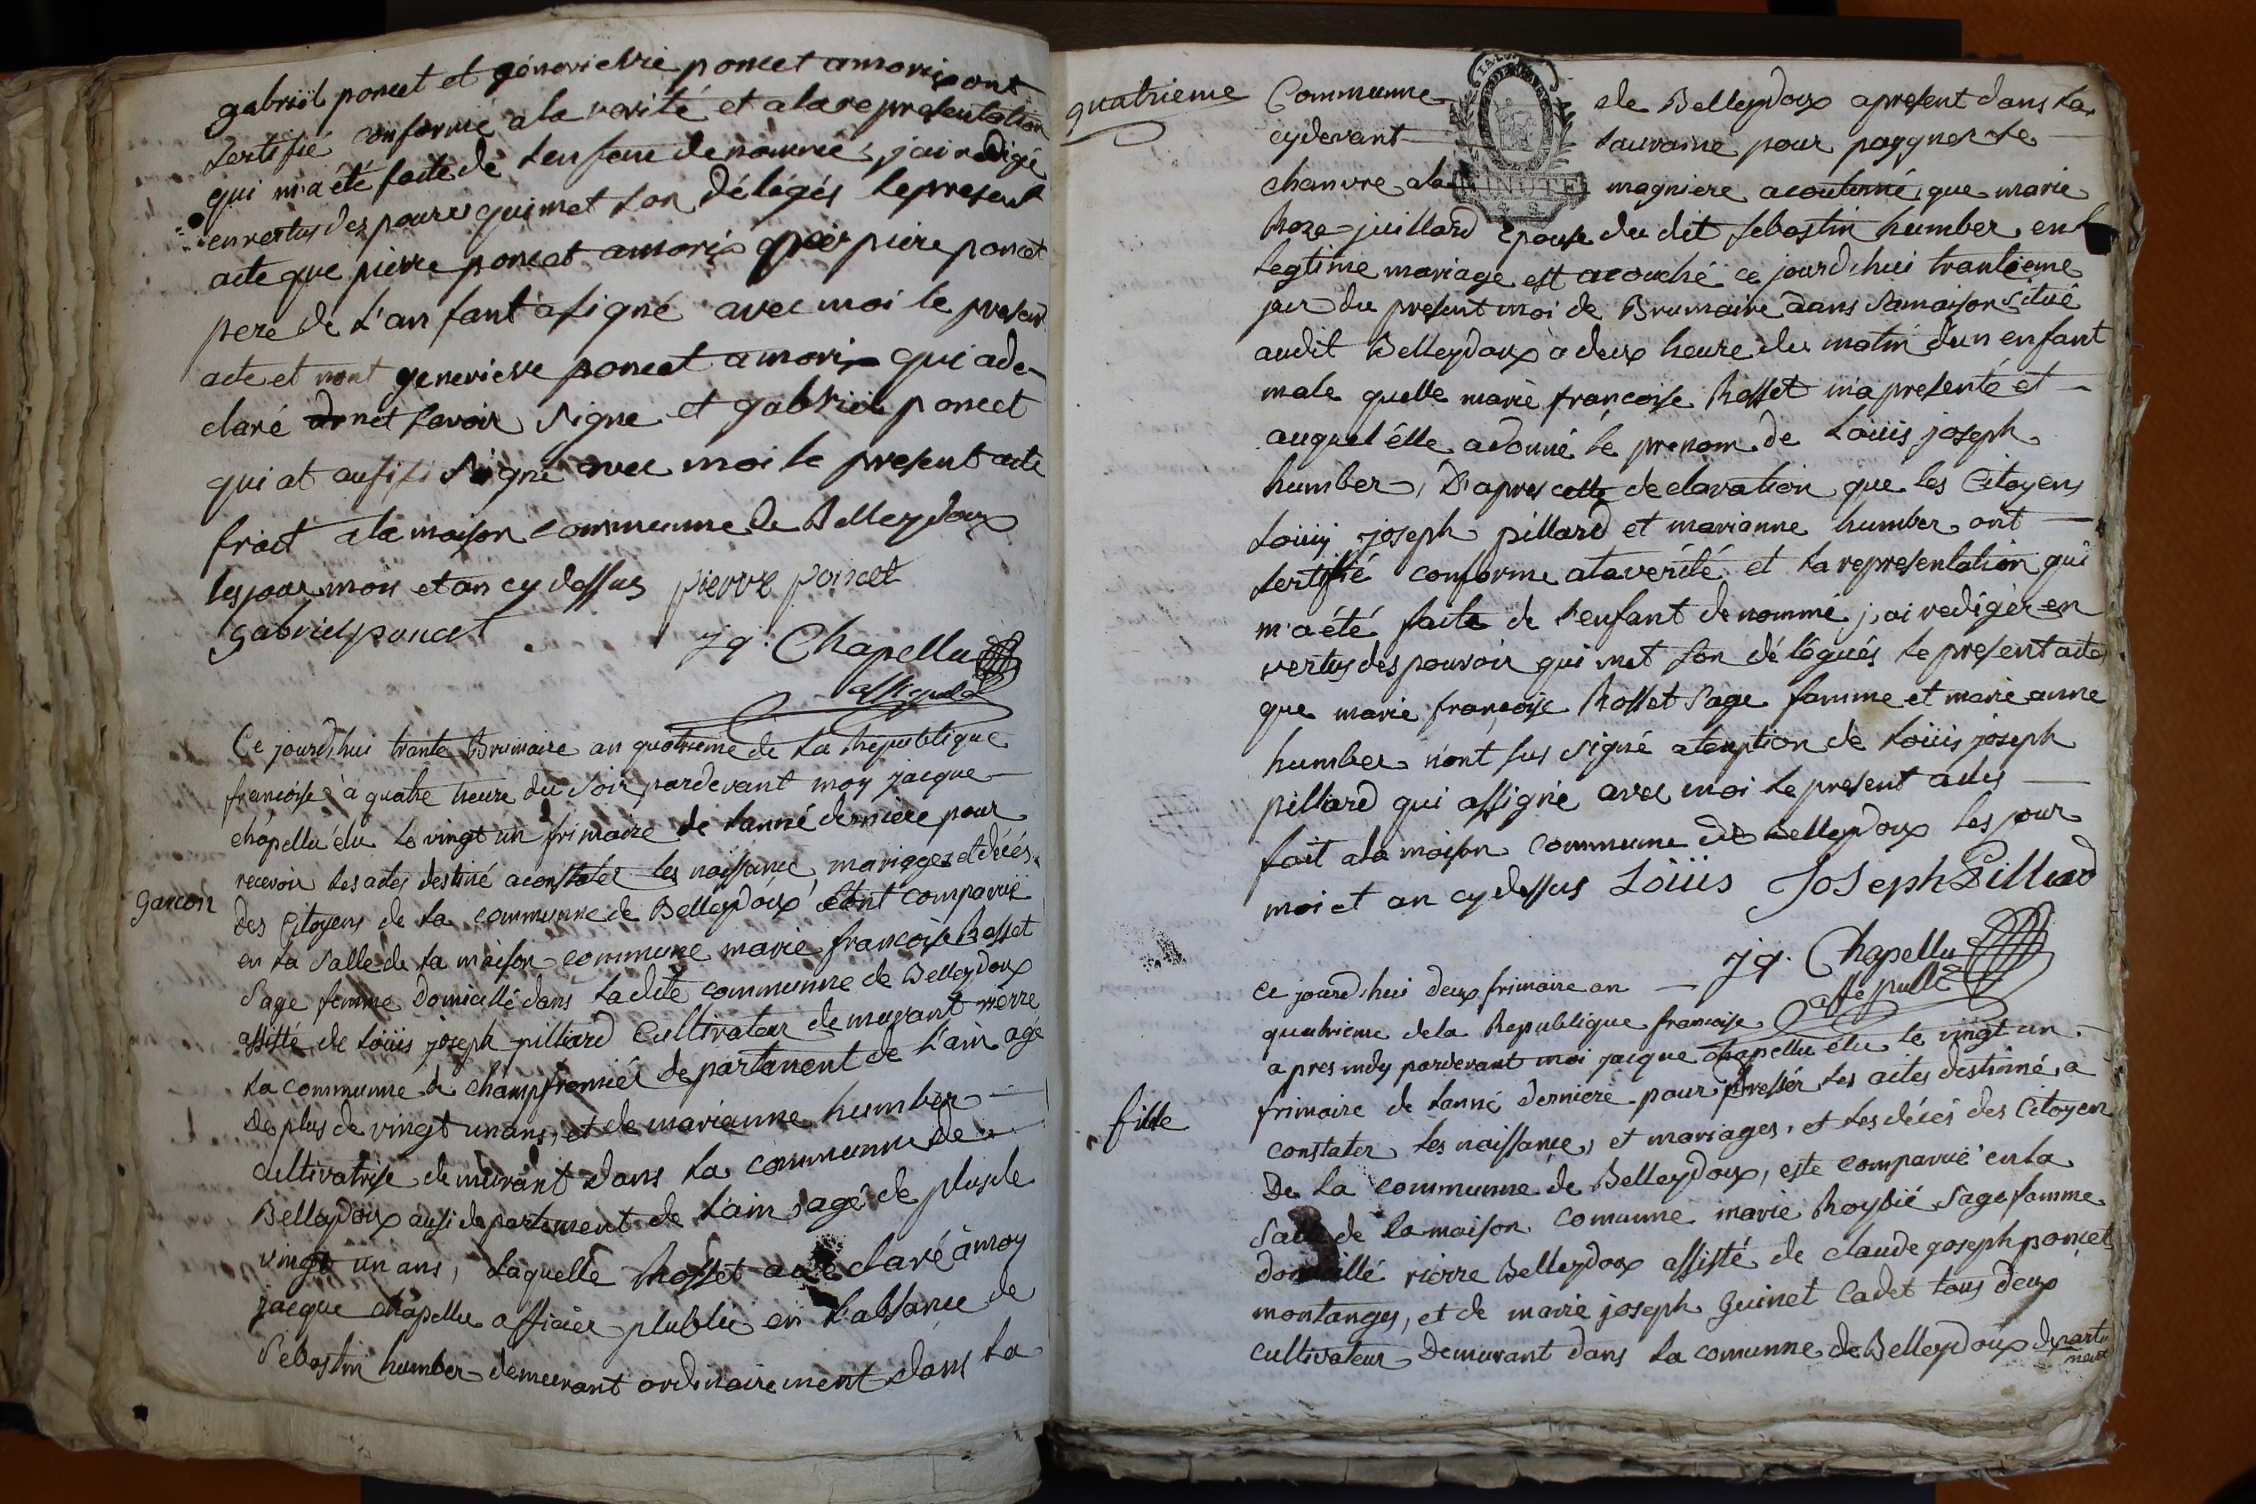 gabriel poncet et génevieve poncet amorix ont
sertifié conforme a la verité et a la representation
qui m'a été faite de lenfan denommé, jai redigé
en vertus des pouvres qui met son délégés le present
acte que pierre poncet amorix pierre poncet
pere de l'anfant a signé avec moi le present
acte et nont genevieve poncet amorix qui a de-
claré net savoir signe et gabriel poncet
qui at aussi signé avec moi le present acte
frait a la maison commune de Belleydoux
les jour mois et an cy dessus pierre poncet
gabriel poncet
Jq. Chapellu
Ce jourd'hui trante Brumaire an quatrieme de la Republique
francoise à quatre heure du soir pardevant moy jacque
chapellu élu le vingt un frimaire de lanné derniere pour
recevoir les actes destiné a constater les naissance, mariages et décés
garcon
des Citoyens de la commune de Belleydoux étant comparue
en la salle de la maison commune marie francoise Rosset
sage femme domicillé dans ladite commune de Belleydoux
assisté de Loüis joseph pilliard Cultivateur demurant rierre
la commune de champfromier departement de l'ain agé
de plus de vingt un ans, et de marianne humber
cultivatrise demurant dans la commune de
Belleydoux ausi departement de l'ain agé de plus de
vingt un ans, laquelle Rosset a declaré a moy
jacque chapellu afficier plublic en l'absance de
Sebastin humber demeurant ordinairement dans la
quatrieme
Commune de Belleydoux apresent dans la
cydevant Lauraine pour paygner le
chanvre a la magniere acoutumé, que marie
Roze juillard épouse du dit sebastin humber en
legtime mariage est acouché ce jourd'hui trantieme
jour du present moi de Brumaire dans samaison situé
audit Belleydoux à deux heure du matin d'un enfant
male quelle marie francoise Rosset m'a presenté et
auquel élle a donné le prenom de Loüis joseph
humber, D'apres cette declaration que les Citoyens
Loüis joseph pillard et marianne humber ont
sertifié conforme a la vérité et la representation qui
m'a été faite de l'enfant denommé j'ai rediger en
vertus des pouvoir qui met son délégués le present actes
que marie francoise Rosset sage famme et marie anne
humber n'ont sus signé a lexption de Loüis joseph
pilliard qui assigné avec moi le present actes
fait a la maison commune de Belleydoux les jour
moi et an cy dessus Loüis Joseph Pilliard
Jq. Chapellu
ce jourd'hui deux frimaire an
quatrieme de la Republique francoise
apres midy pardevant moi jacque chapellu élu le vingt un
frimaire de lanné derniere pour dresser les actes destinné a
fille
constater les naissance, et mariages, et les décés des Citoyen
De la commune de Belleydoux, este comparué en la
salle de la maison comunne marie Roybié sagefamme
domicillé rierre Belleydoux assisté de claude joseph poncet
montanges, et de marie joseph Guinet Cadet tous deux
cultivateur demurant dans la comunne de Belleydoux departe
ment